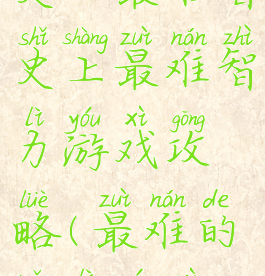 shǐ shàng zuì nán zhì
史上最难智
lì yóu xì gōng
力游戏攻
lüè zuì nán de
略(最难的